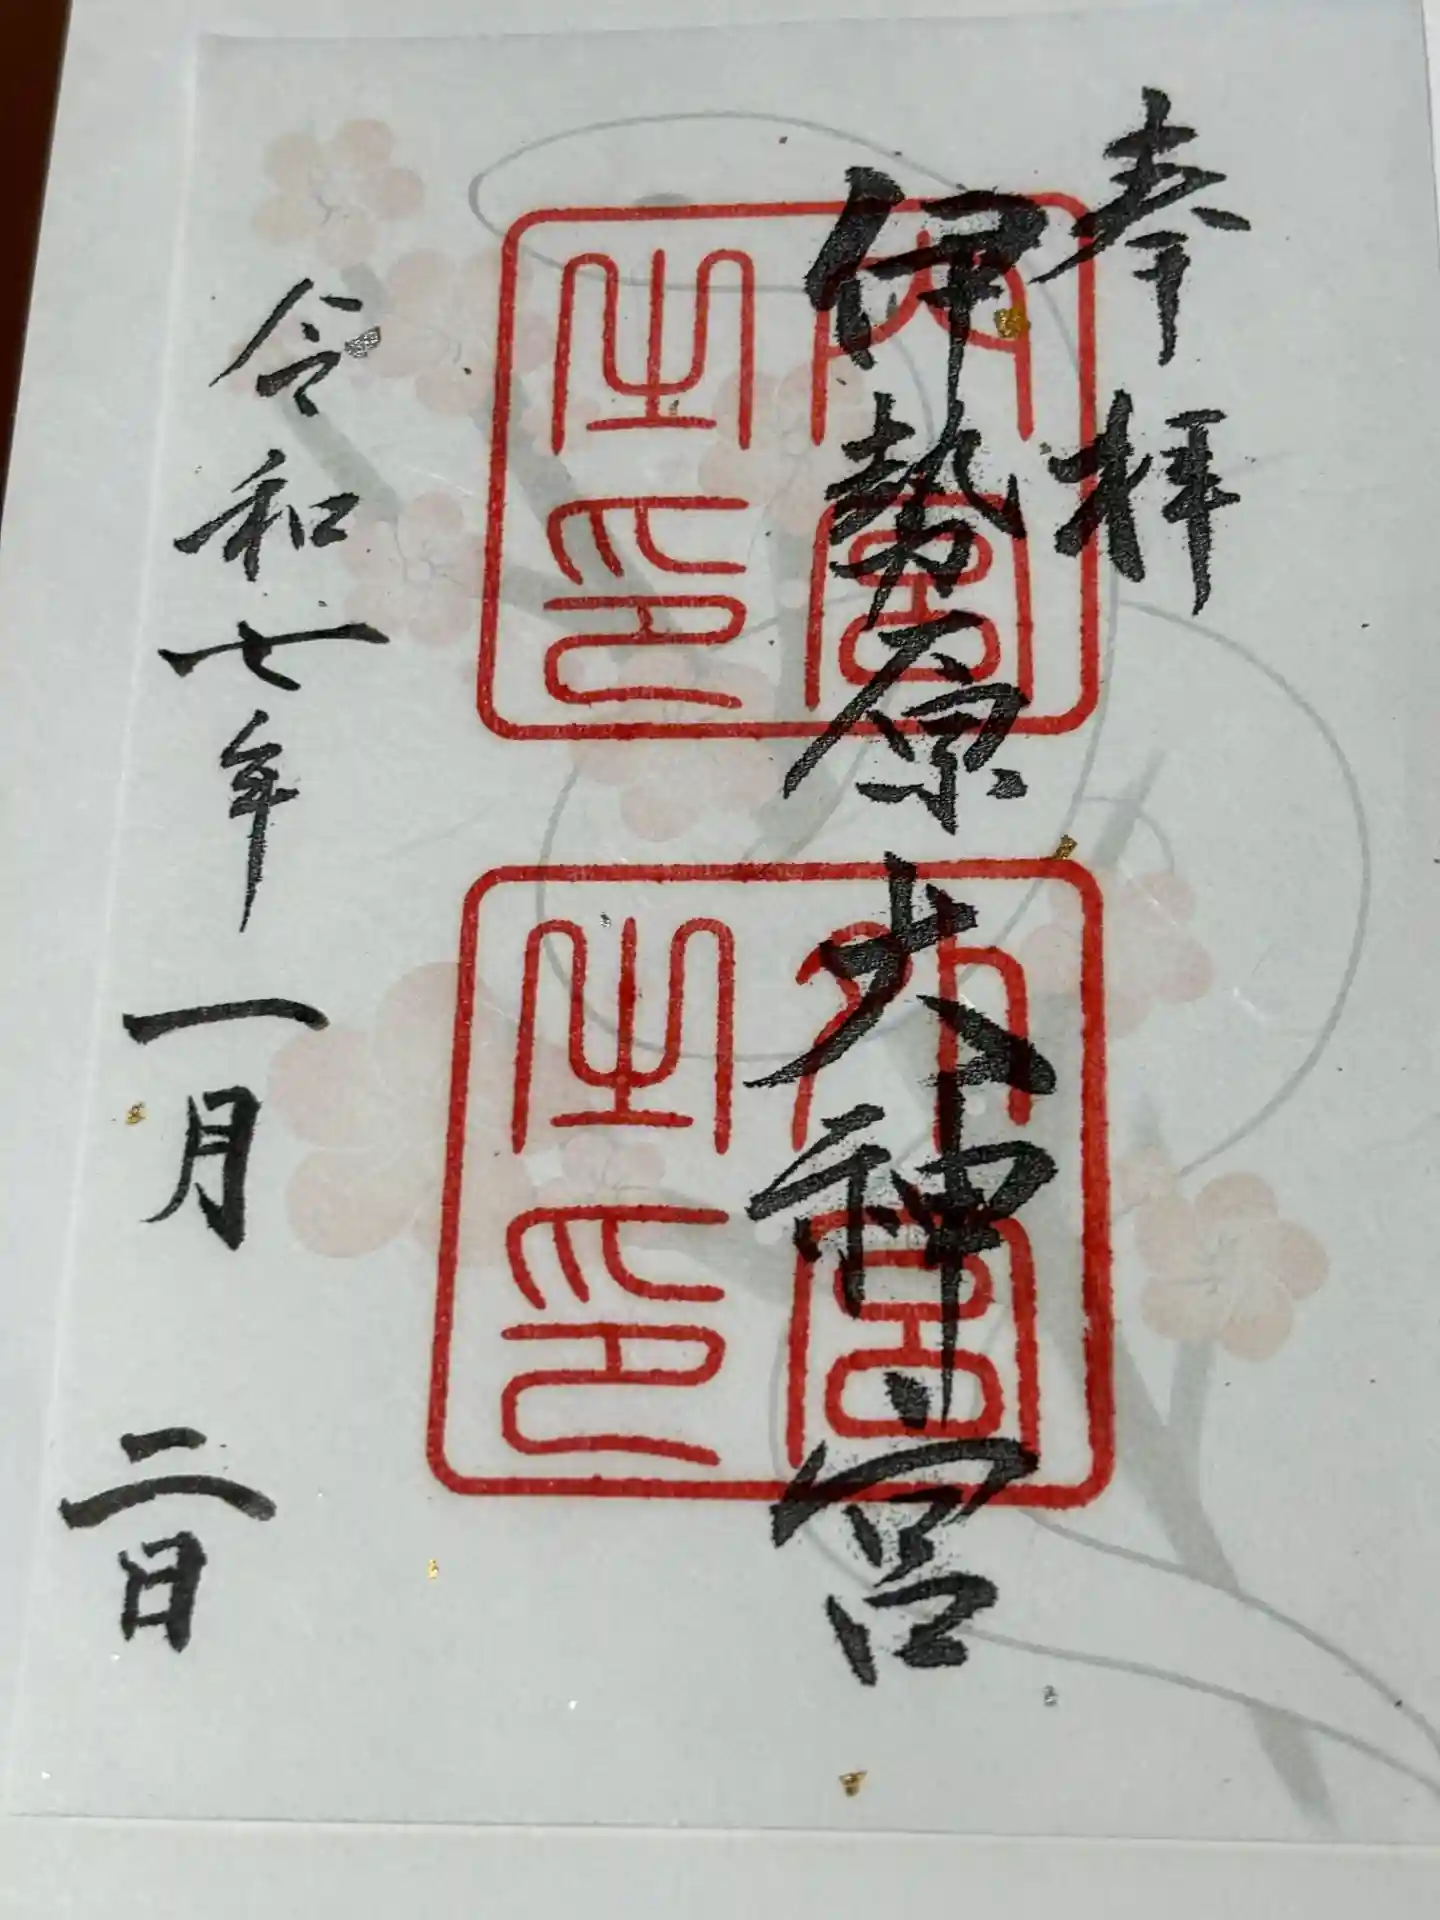 奉拝
伊勢原大神宮
内宮
之印
外宮
之印
令和七年一月二日